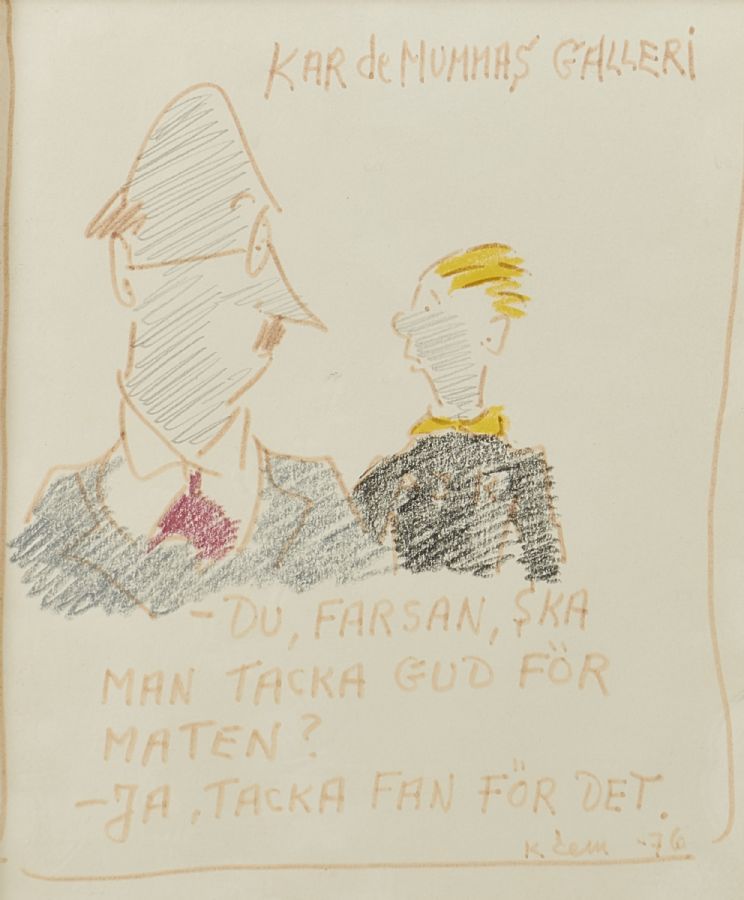 KAR de MUMMAS GALLERI
- DU, FARSAN, SKA
MAN TACKA GUD FÖR
MATEN?
- JA, TACKA FAN FÖR DET.
-76